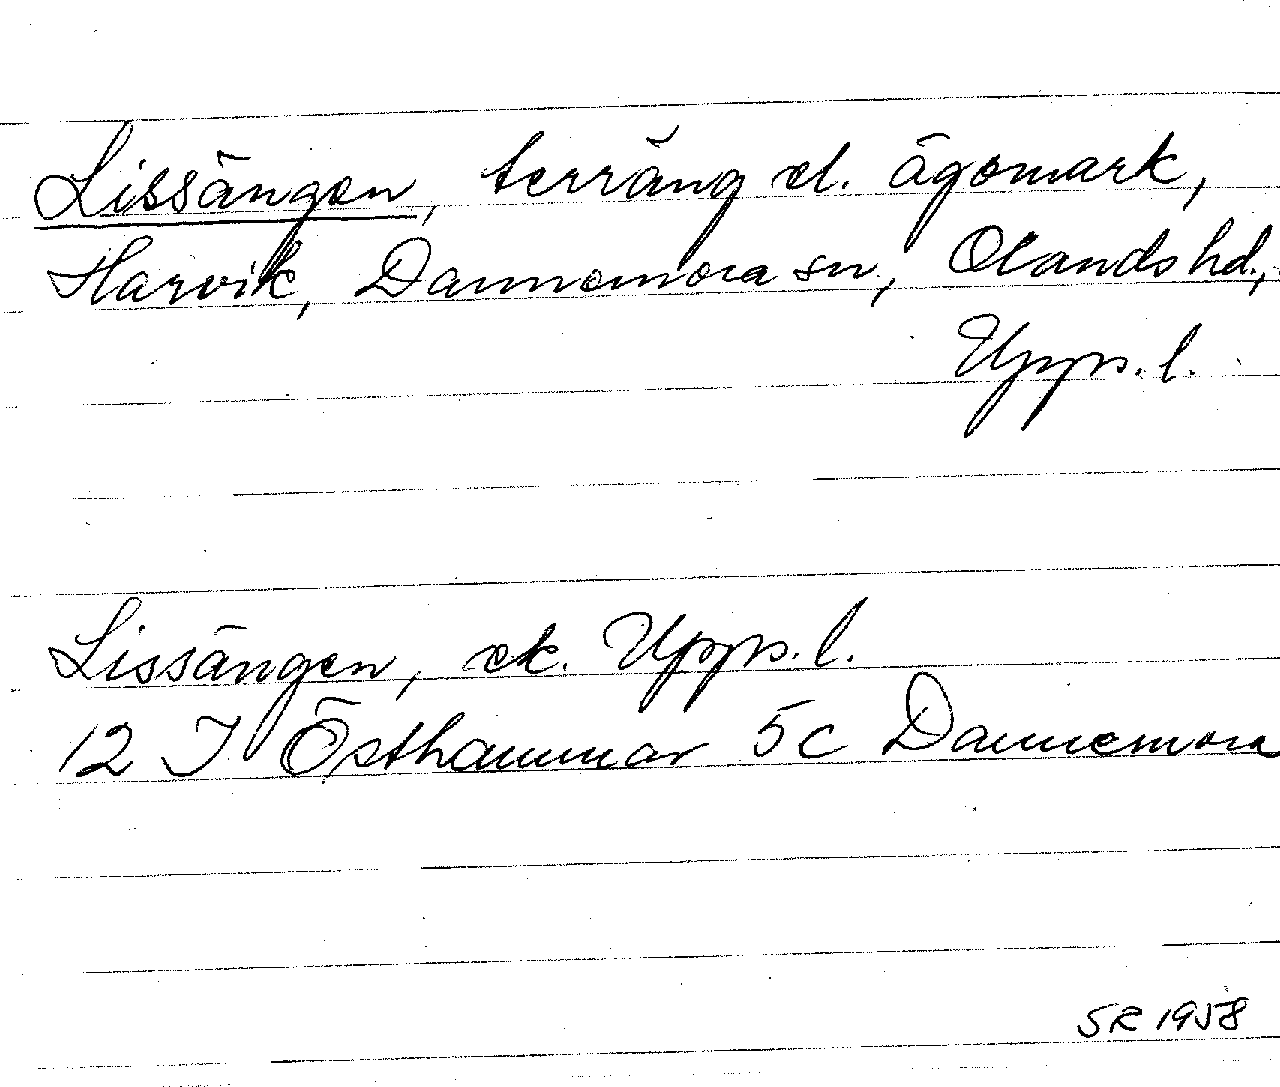 Lissängen, terräng el. ägomark,
Harvik, Dannemora sn, Olands hd.,
Upps. l.
Lissängen, ek. Upps. l.
12 I Östhammar 5c Dannemora
SR 1958